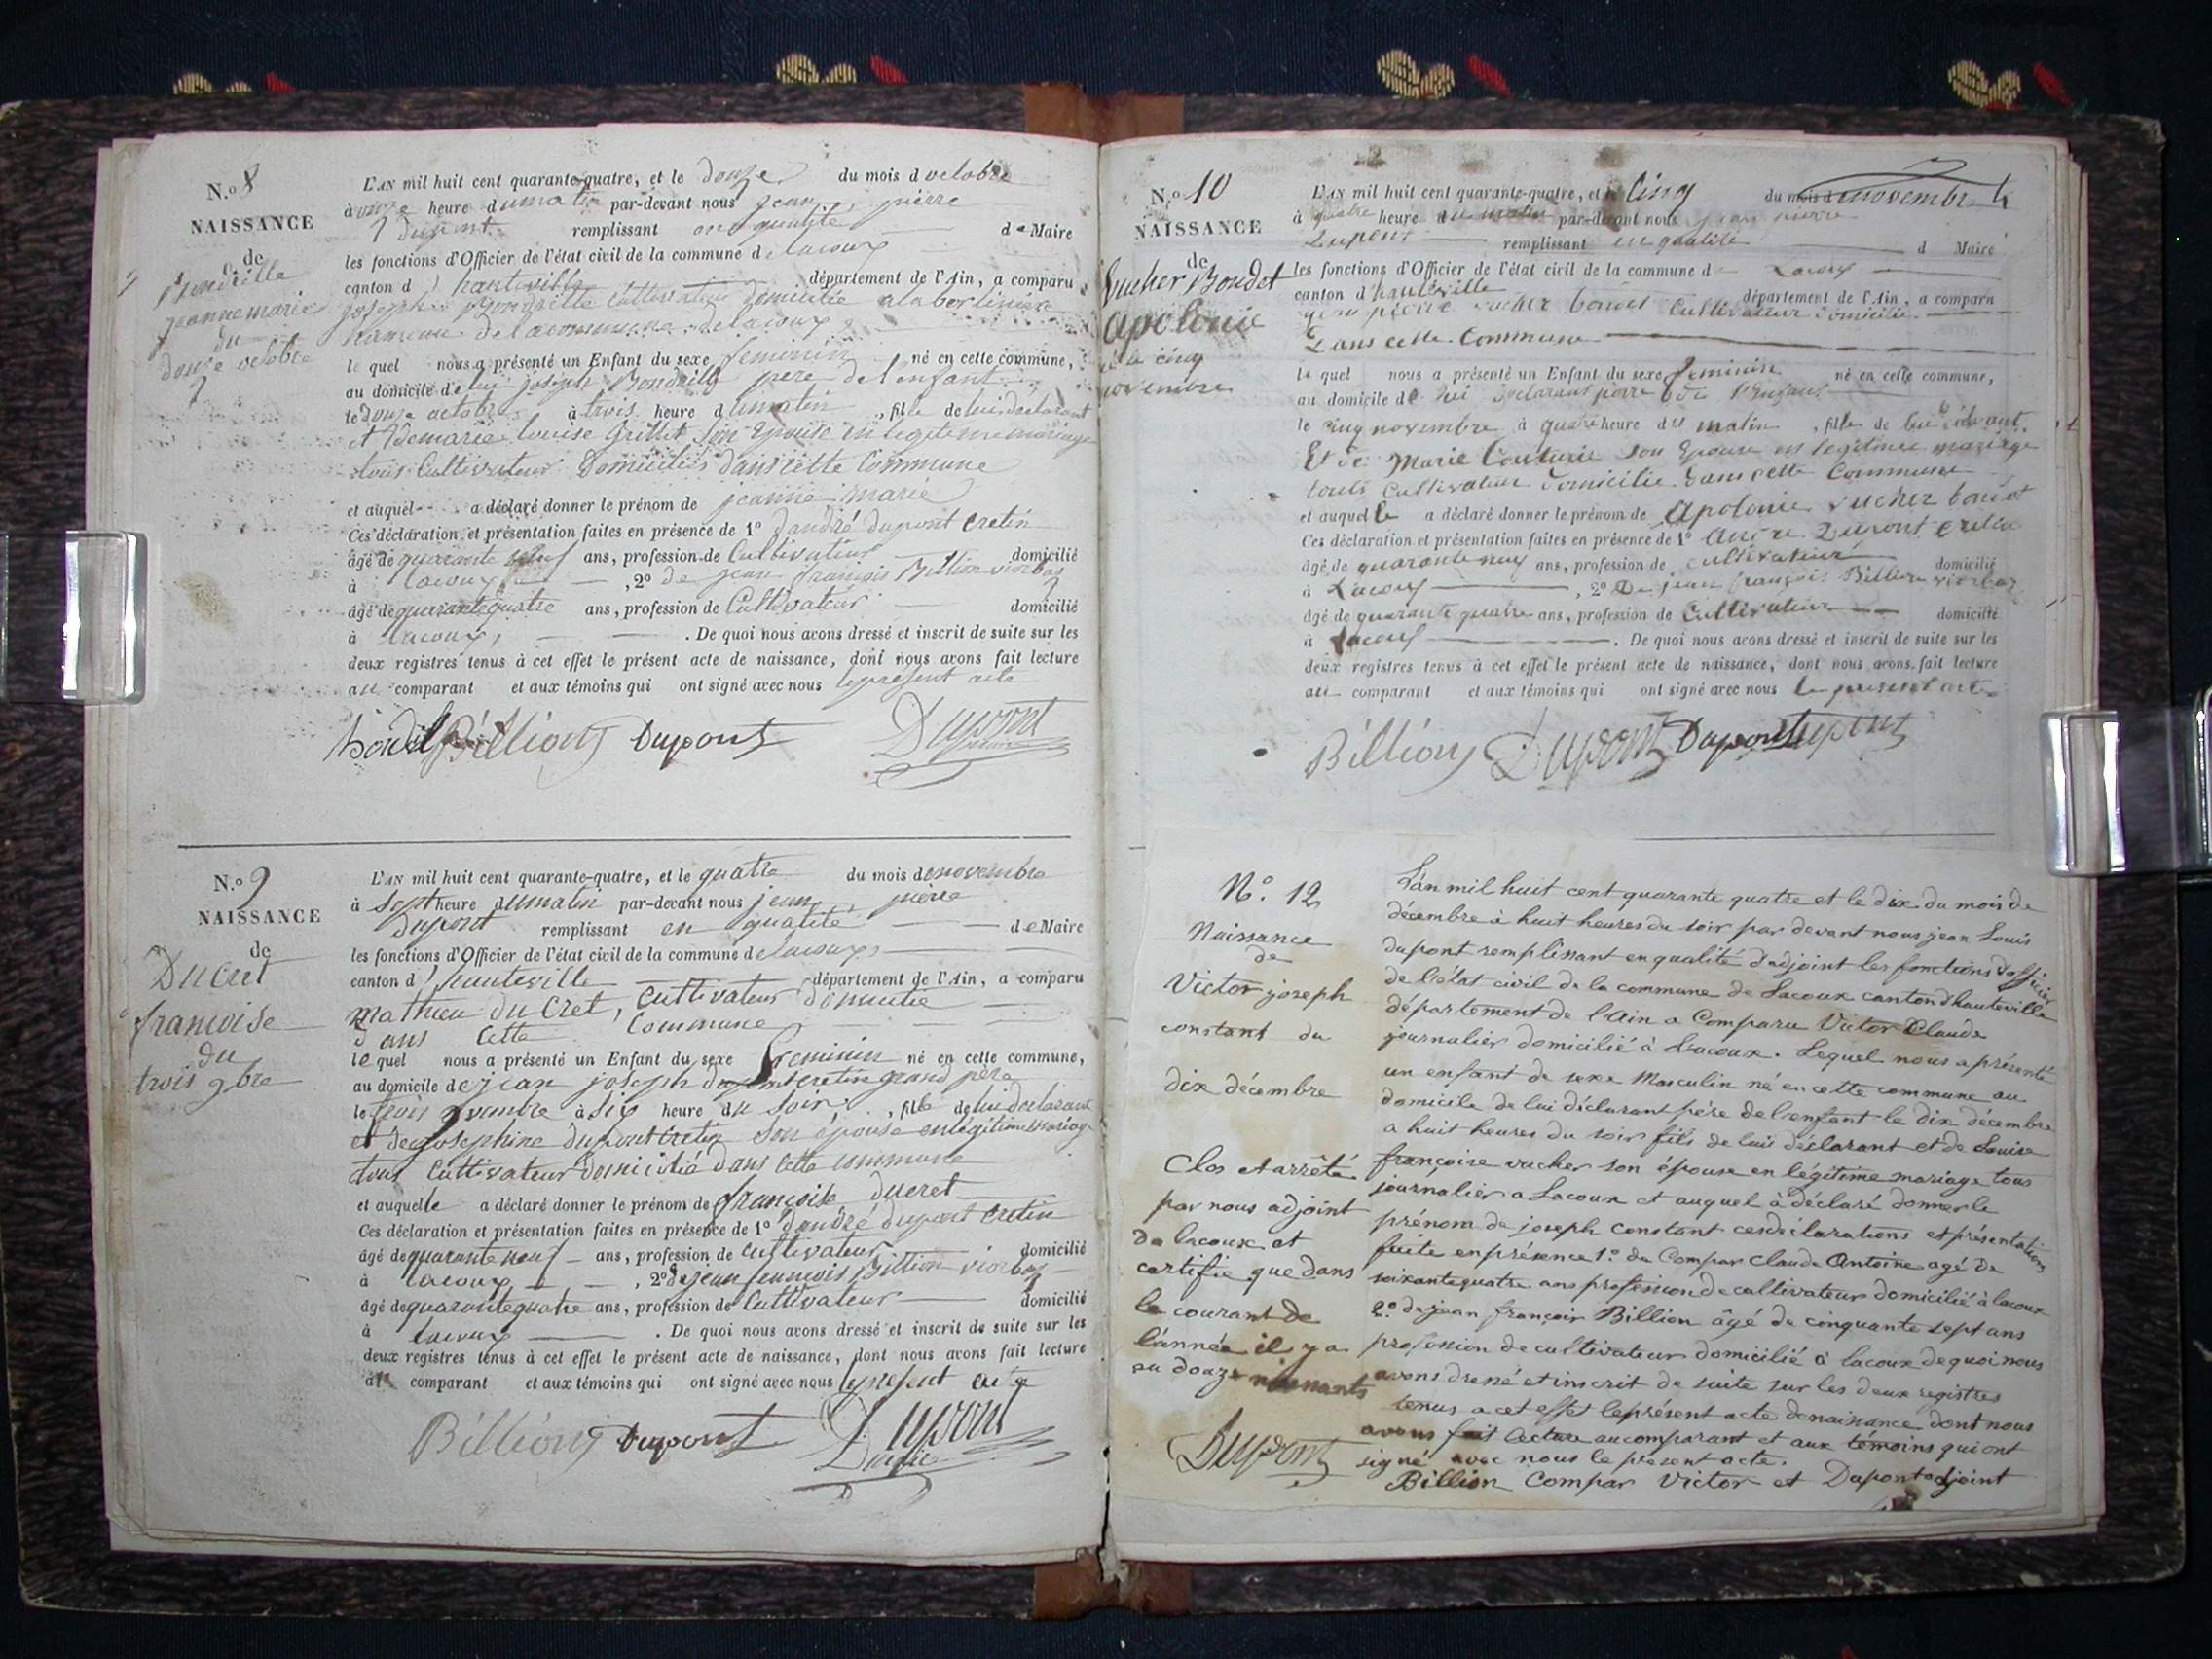 N.o 8
NAISSANCE
de
Bondille
jeanne marie
du
douze octobre
L'AN mil huit cent quarante-quatre, et le douze du mois d octobre
à onze heure du matin par-devant nous jean pierre
Dupont remplissant en qualité de Maire
les fonctions d'Officier de l'état civil de la commune de lacoux
canton d'hauteville département de l'Ain, a comparu
joseph Bondille Cultivateur domicilié a la
hameau de la commune de lacoux
le quel nous a présenté un Enfant du sexe feminin né en cette commune,
au domicile de lui joseph Bondille pere de l'enfant
le douze octobre à trois heure du matin, fille de lui declarant
et de marie louise Grillet son Epouse en legitime mariage
tous Cultivateur Domiciliés dans cette Commune
et auquel a déclaré donner le prénom de jeanne marie
Ces déclaration et présentation faites en présence de 1o d'andré dupont cretin
âgé de quarante neuf ans, profession de Cultivateur domicilié
à lacoux, 2o de jean francois Billion viorbaz
âgé de quarante quatre ans, profession de Cultivateur domicilié
à lacoux, . De quoi nous avons dressé et inscrit de suite sur les
deux registres tenus à cet effet le présent acte de naissance, dont nous avons fait lecture
au comparant et aux témoins qui ont signé avec nous le present acte
Billion Dupont Dupont
N.o 9
NAISSANCE
de
Ducret
francoise
du
trois 9bre
L'AN mil huit cent quarante-quatre, et le quatre du mois de novembre
à sept heure du matin par-devant nous jean pierre
Dupont remplissant en qualité de Maire
les fonctions d'Officier de l'état civil de la commune de lacoux
canton d'hauteville département de l'Ain, a comparu
mathieu du Cret, Cultivateur domicilié
dans Cette Commune
le quel nous a présenté un Enfant du sexe feminin né en cette commune,
au domicile de jean joseph dupont cretin grand père
le trois novembre à six heure du soir, fille de lui declarant
et de josephine dupont cretin son épouse en légitime mariage
tous Cultivateur domicilié dans cette commune
et auquelle a déclaré donner le prénom de françoise ducret
Ces déclaration et présentation faites en présence de 1o d'andré dupont cretin
âgé de quarante neuf ans, profession de cultivateur domicilié
à lacoux, 2o de jean francois Billion viorbaz
âgé de quarante quatre ans, profession de Cultivateur domicilié
à lacoux . De quoi nous avons dressé et inscrit de suite sur les
deux registres tenus à cet effet le présent acte de naissance, dont nous avons fait lecture
au comparant et aux témoins qui ont signé avec nous le present acte
Billion Dupont Dupont
N.o 10
NAISSANCE
de
Vucher Bondet
apolonie
le cinq
novembre
L'AN mil huit cent quarante-quatre, et le Cinq du mois d novembre
à quatre heure du matin par-devant nous jean pierre
Dupont remplissant en qualité d Maire
les fonctions d'Officier de l'état civil de la commune d Lacoux
canton d'hauteville département de l'Ain, a comparu
jean pierre vucher bondet Cultivateur domicilié
Dans cette Commune
le quel nous a présenté un Enfant du sexe feminin né en cette commune,
au domicile de lui déclarant père de l'Enfant
le cinq novembre à quatre heure du matin, fille de lui
Et de Marie Couturie son Epouse en legitime mariage
touts Cultivateur domicilié dans cette Commune
et auquel le a déclaré donner le prénom de apolonie vucher bondet
Ces déclaration et présentation faites en présence de 1o André Dupont cretin
âgé de quarante neuf ans, profession de cultivateur domicilié
à Lacoux, 2o De jean françois Billion viorbaz
âgé de quarante quatre ans, profession de Cultivateur domicilié
à Lacoux . De quoi nous avons dressé et inscrit de suite sur les
deux registres tenus à cet effet le présent acte de naissance, dont nous avons fait lecture
au comparant et aux témoins qui ont signé avec nous le present acte
Billion Dupont Dupont Dupont
No. 12
Naissance
de
Victor joseph
constant du
dix décembre
Clos et arrêté
par nous adjoint
De lacoux et
certifie que dans
le courant De
l'année il y a
eu douze naissants
Dupont
L'an mil huit cent quarante quatre et le dix du mois de
décembre à huit heures du soir par devant nous jean Louis
dupont remplissant en qualité d'adjoint les fonctions d'officier
de l'état civil de la commune de Lacoux canton d'hauteville
département de l'Ain a Comparu Victor Claude
journalier domicilié à Lacoux. Lequel nous a présenté
un enfant de sexe Masculin né en cette commune au
domicile de lui déclarant père de l'enfant le dix décembre
a huit heures du soir fils de lui déclarant et de Louise
françoise vucher son épouse en légitime mariage tous
journalier a Lacoux et auquel à déclaré donner le
prénom de joseph constant ces déclarations et présentations
faite en présence 1.o de Compar Claude Antoine agé De
soixante quatre ans profession de cultivateur domicilié à lacoux
2.o de jean françois Billion âgé de cinquante sept ans
profession de cultivateur domicilié à lacoux de quoi nous
avons dressé et inscrit de suite sur les deux registres
tenus a cet effet le présent acte de naissance dont nous
avons fait lecture au comparant et aux témoins qui ont
signé avec nous le présent acte.
Billion Compar Victor et Dupont adjoint